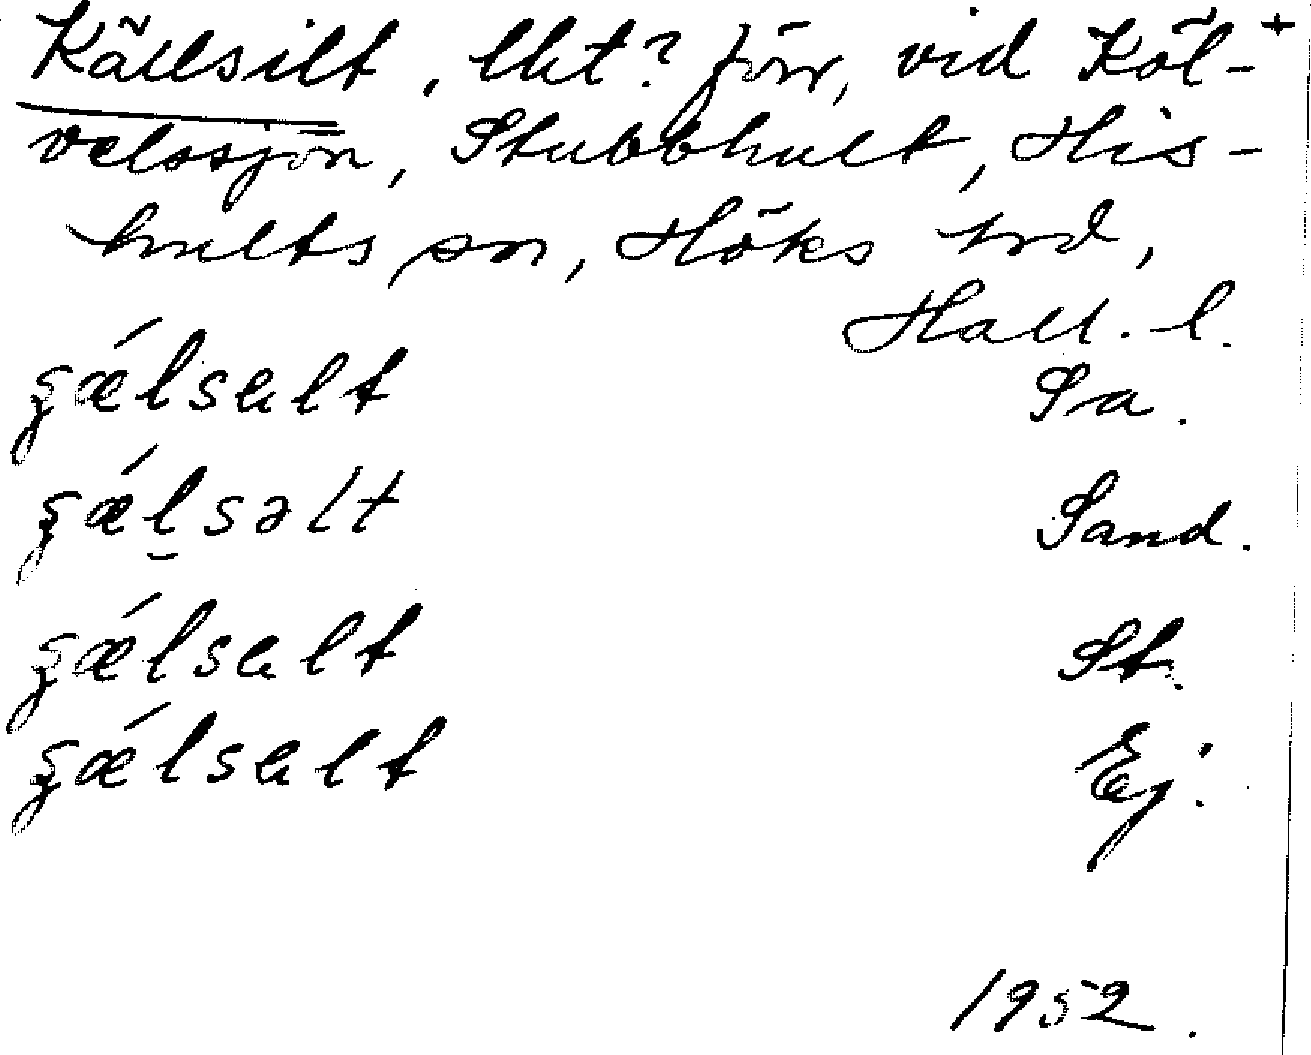 Källsilt, lht? förr, vid Köl- +
velssjön, Stubbhult, His-
hults sn, Höks hd,
Hall. l.
ɕǽlsalt Sa.
ɕǽḻsəlt Sand.
ɕǽlsalt St.
ɕǽlsalt Ej.
1952.